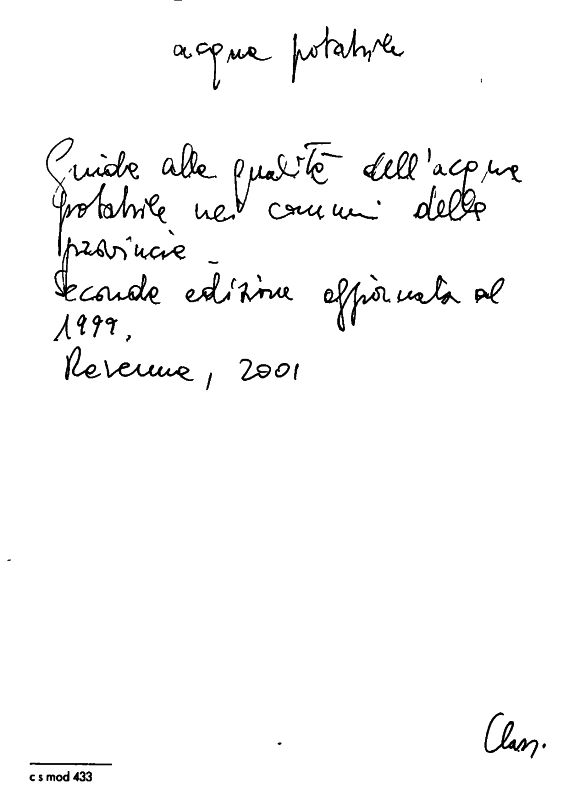 acqua potabile
Guida alla qualità dell'acqua
potabile nei comuni della
provincia _
Seconda edizione aggiornata al
1999.
Ravenna, 2001
Class.
c s mod 433